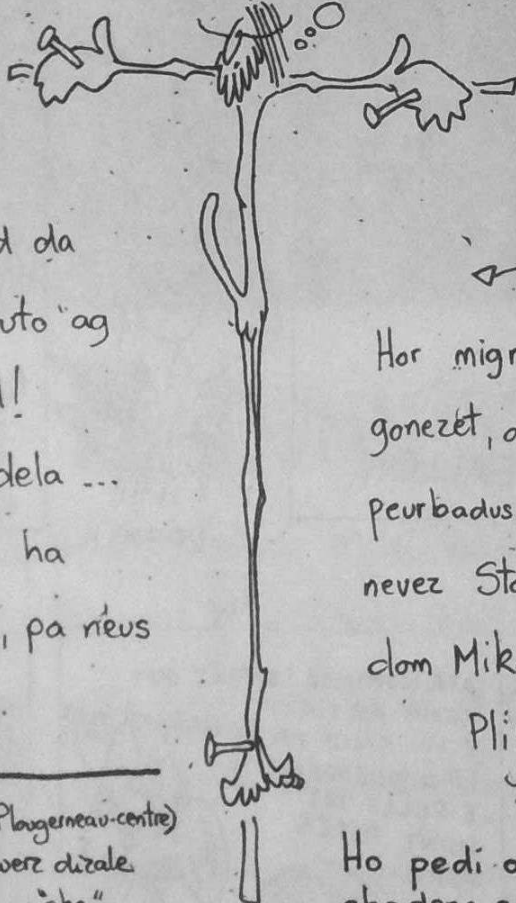 da
uto "ag
!
dela ...
ha
, pa n'eus
Plougerneau-centre)
werz dizale
"cha"
Hor migr
gonezet, a
peurbadus
nevez Sta
dom Mik
Pli
Ho pedi a